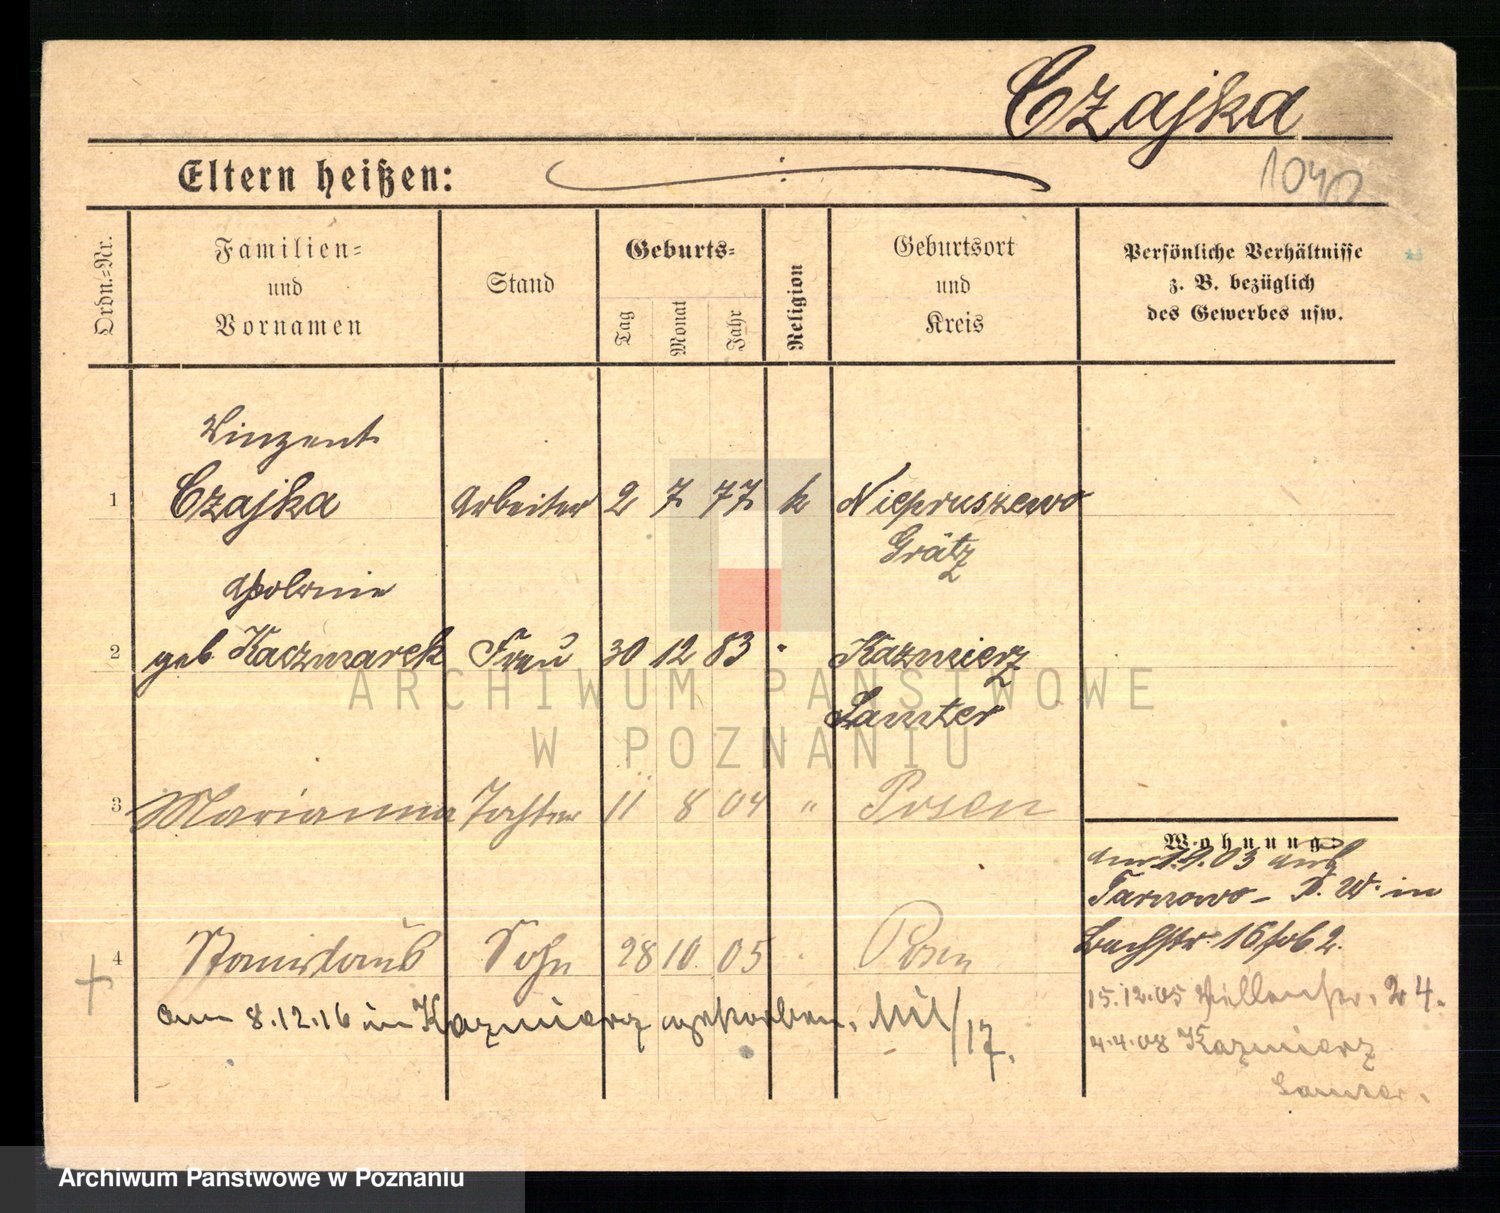 Czajka
Eltern heißen:
Ordn.=Nr.
Familien=
und
Vornamen
Stand
Geburts=
Tag Monat Jahr
Religion
Geburtsort
und
Kreis
Persönliche Verhältnisse
z. B. bezüglich
des Gewerbes usw.
Vinzent
1 Czajka Arbeiter 2 7 77 k Niepruszewo
Grätz
Apolonie
2 geb. Kaczmarek Frau 30 12 83 " Kazmierz
Samter
3 Marianna Tochter 11 8 04 " Posen
Wohnung:
Tarnowo - P. W. in
Bachstr. 16
4 Stanislaus Sohn 28 10 05 " Posen
+
am 8.12.16 in Kazmierz gestorben.
15.12.05 24.
4.4.08 Kazmierz
Samter.
ARCHIWUM PAŃSTWOWE
W POZNANIU
Archiwum Państwowe w Poznaniu